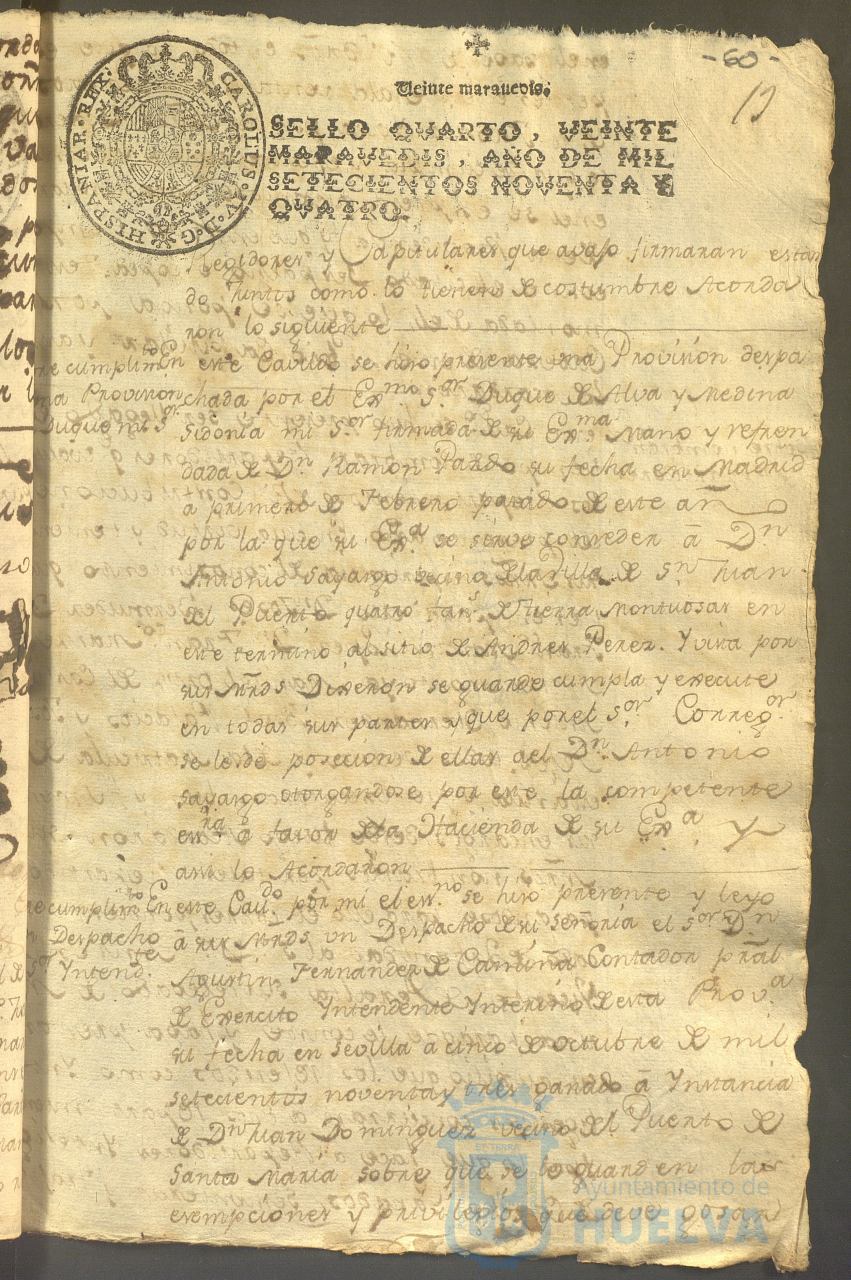 - 60 -
Veinte maravedis.
SELLO QVARTO, VEINTE
MARAVEDIS, AÑO DE MIL
SETECIENTOS NOVENTA Y
QVATRO.
CAROLUS·IV·D·G·HISPANIAR·REX·
Regidores y Capitulares que avajo firmaran estan
do Juntos como lo tienen de costumbre Acorda
ron lo siguiente
re cumplimto
una Provision
Duque mi Sr
En este Cavildo se hizo presente una Provision despa
chada por el Exmo Sor Duque de Alva y Medina
sidonia mi Sor firmada de su Exma Mano y refren
dada de Dn Ramon Pardo su fecha en Madrid
a primero de Febrero pasado de este añ
por la que su Exa se sirve conceder â Dn
Antonio Sayago vecino de la Villa de Sn Juan
del Puerto quatro fans de tierra Montuosas en
este termino al sitio de Andres Perez. Y vista por
sus Mrds Dixeron se guarde cumpla y execute
en todas sus partes y que por el Sor Corregor
se le de posecion de ellas a el Dn Antonio
Sayago otorgandose por este la competente
essra a favor de la Hacienda de su Exa y
assi lo Acordaron
re cumplimto
Despacho
el Sor Yntendte
En este Caudo por mi el essno se hizo presente y leyo
â sus Mrds un Despacho de su señoria el Sor Dn
Agustin Fernandez de Camiña Contador pral
de Exercito Yntendente Ynterino de esta Prova
su fecha en Sevilla a cinco de octubre de mil
setecientos noventa y tres ganado â Ynstancia
de Dn Juan Dominguez vecino del Puerto de
Santa Maria sobre que se le guarden las
exempciones y privilegios que deve gosar
Ayuntamiento de
HUELVA